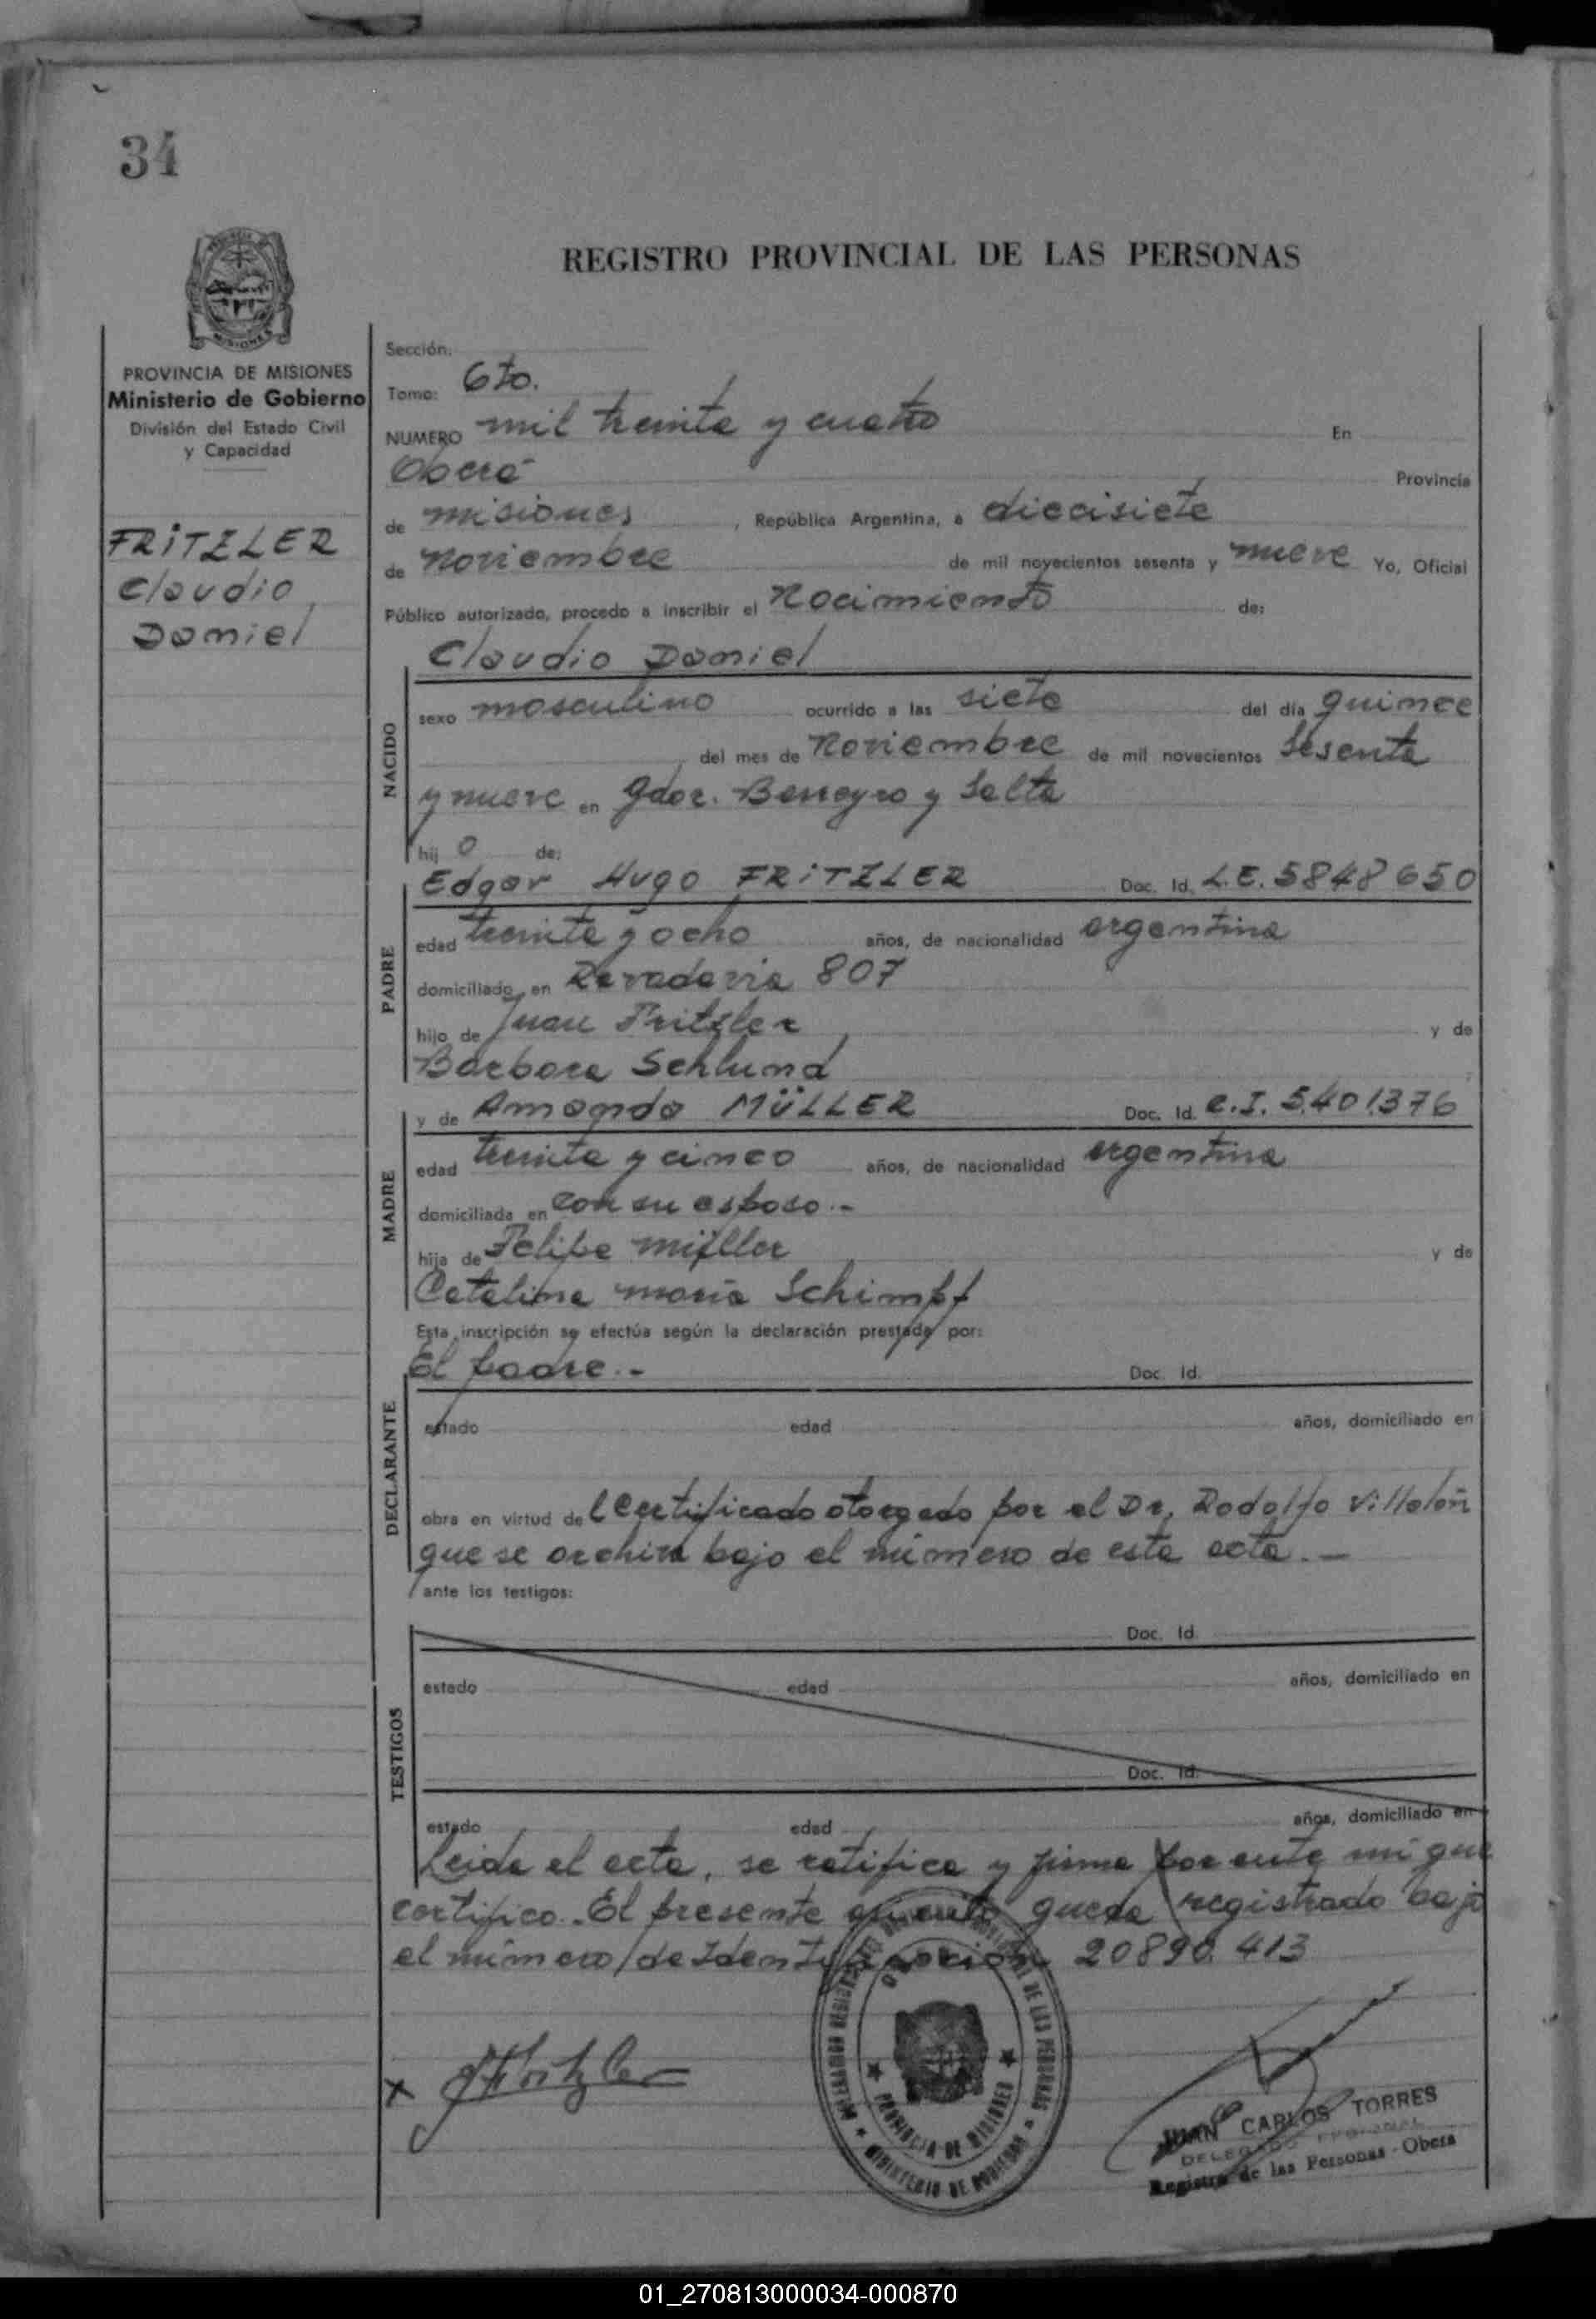 34
REGISTRO PROVINCIAL DE LAS PERSONAS
PROVINCIA DE MISIONES
Ministerio de Gobierno
División del Estado Civil
y Capacidad
FRITZLER
Claudio
Daniel
Sección:
Tomo: 6to.
NUMERO mil treinta y cuatro En
Oberá Provincia
de misiones, República Argentina, a diecisiete
de noviembre de mil novecientos sesenta y nueve Yo, Oficial
Público autorizado, procedo a inscribir el Nacimiento de:
Claudio Daniel
NACIDO
sexo masculino ocurrido a las siete del día quince
del mes de Noviembre de mil novecientos sesenta
y nueve en Gdor. Barreyro y Salta
hij o de:
Edgar Hugo FRITZLER Doc. Id. L.E. 5848650
PADRE
edad treinta y ocho años, de nacionalidad argentina
domiciliado en Rivadavia 807
hijo de Juan Fritzler y de
Barbara Schlund
y de Amanda MÜLLER Doc. Id. C.I. 5.401.376
MADRE
edad treinta y cinco años, de nacionalidad argentina
domiciliada en con su esposo.-
hija de Felipe Müller y de
Catalina maria Schimpf
Esta inscripción se efectúa según la declaración prestada por:
El padre.- Doc. Id.
DECLARANTE
estado edad años, domiciliado en
obra en virtud de l certificado otorgado por el Dr. Rodolfo
que se archiva bajo el número de esta acta.-
ante los testigos:
Doc. Id.
TESTIGOS
estado edad años, domiciliado en
Doc. Id.
estado edad años, domiciliado en
Leida el acta, se ratifica y firma por ante mí que
certifico. El presente queda registrado bajo
el número de Identificación 20890.413
Fritzler
PROVINCIA DE MISIONES
MINISTERIO DE GOBIERNO
JUAN CARLOS TORRES
DELEGADO REGIONAL
Registro de las Personas - Obera
01_270813000034-000870